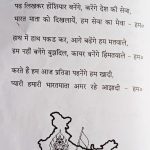 पढ़ लिखकर होशियार बनेंगे, करेंगे देश की सेवा,
भारत माता को दिखलायें, हम सेवा का मेवा - हम०
हाथ में हाथ पकड़ कर, आगे बढेंगे हम मतवाले,
हम नहीं बनेंगे बुझदिल, कायर बनेंगे हिम्मतवाले - हम०
करते है हम आज प्रतिज्ञा पहनेंगे हम खादी,
प्यारी हमारी भारतमाता अमर रहे आझादी - हम०